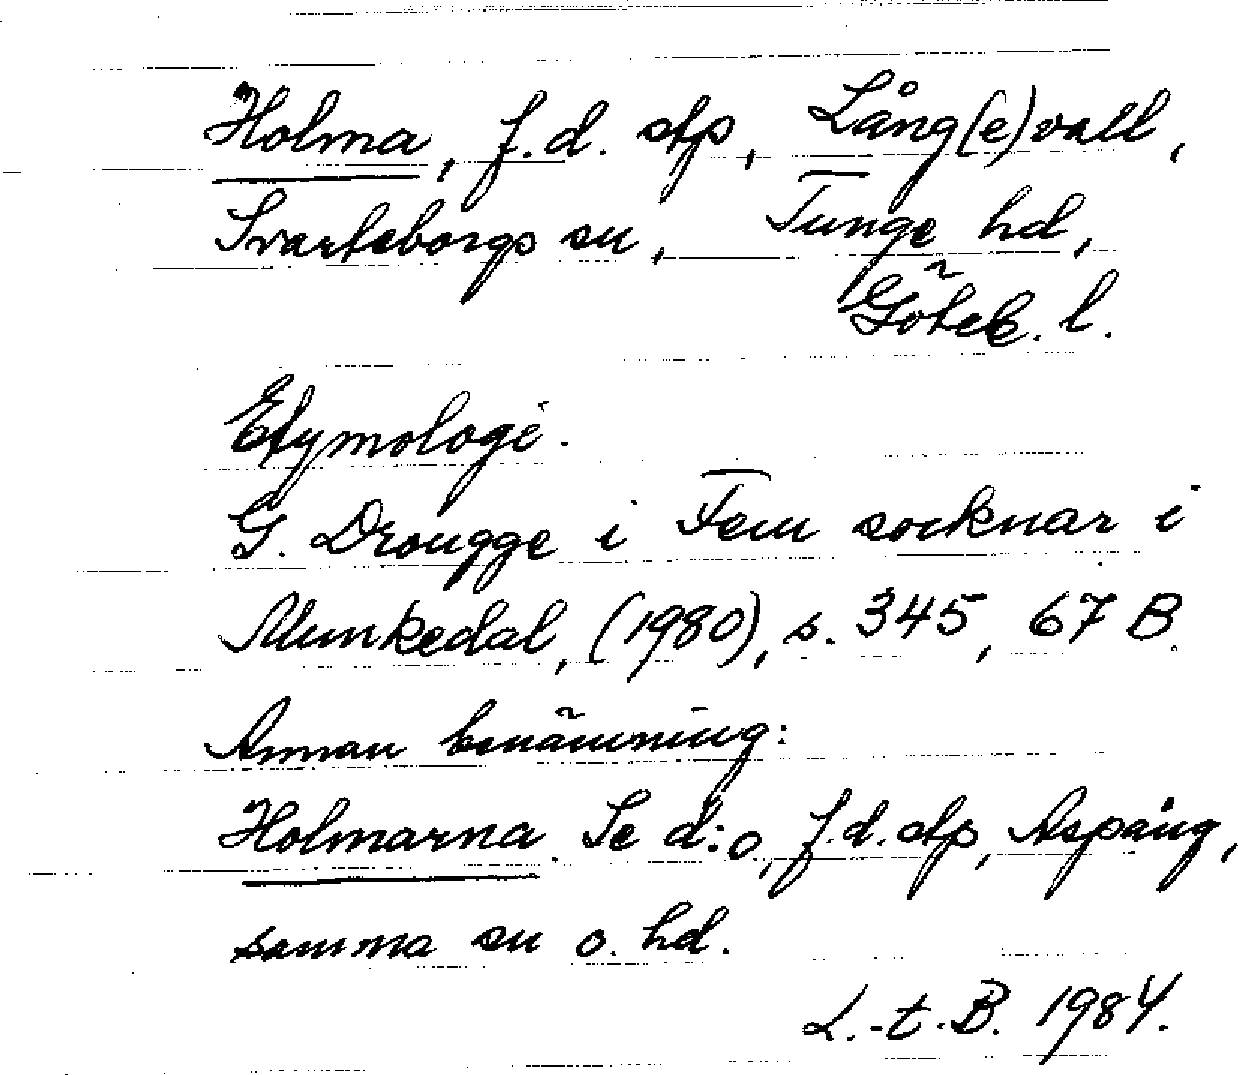 Holma, f.d. stp, Lång(e)vall,
Svarteborgs sn, Tunge hd,
Göteb. l.
Etymologi.
G. Drougge i Fem socknar i
Munkedal, (1980), s. 345, 67 B.
Annan benämning:
Holmarna. Se d:o, f.d. stp, Aspäng,
samma sn o. hd.
L.-t.B. 1984.